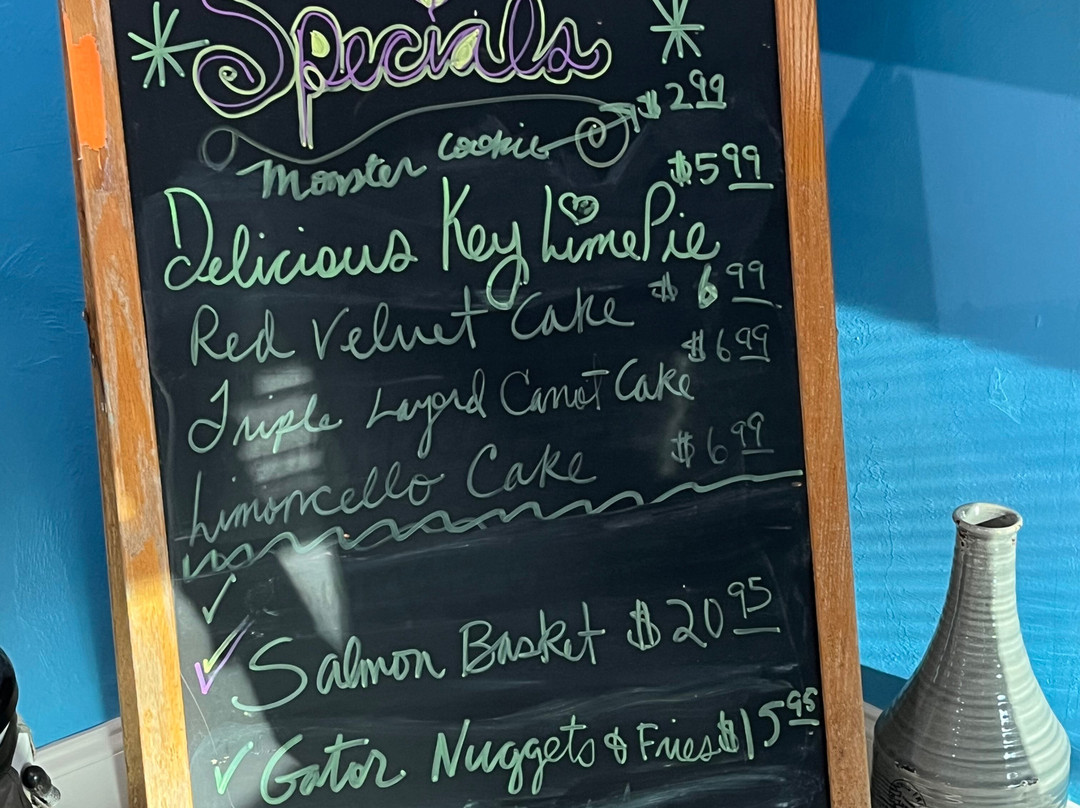 Specials
Monster cookie $2.99
Delicious Key Lime Pie $5.99
Red Velvet Cake $6.99
Triple Layerd Carrot Cake $6.99
Limoncello Cake $6.99
Salmon Basket $20.95
Gator Nuggets & Fries $15.95